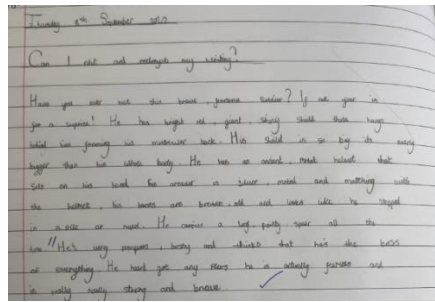 Thursday 8th September 2010
Can I edit and my writing?
Have you ever met this brave, fearsome soldier? If not your in
for a suprise! He has bright red, giant, shiny shield that hangs
behind him his muscular back. His shield is so big its nearly
bigger than his whole body. He has an ancient, metal helmet that
sits on his head his armour is silver, metal and matching with
the helmet, his boots are brown, old and looks like he stepped
in a pile of mud. He carries a long, spear all the
time "He's very prepared, bossy and thinks that he's the boss
of everything He hasn't got any fears he is actually fearless and
is really really strong and brave.